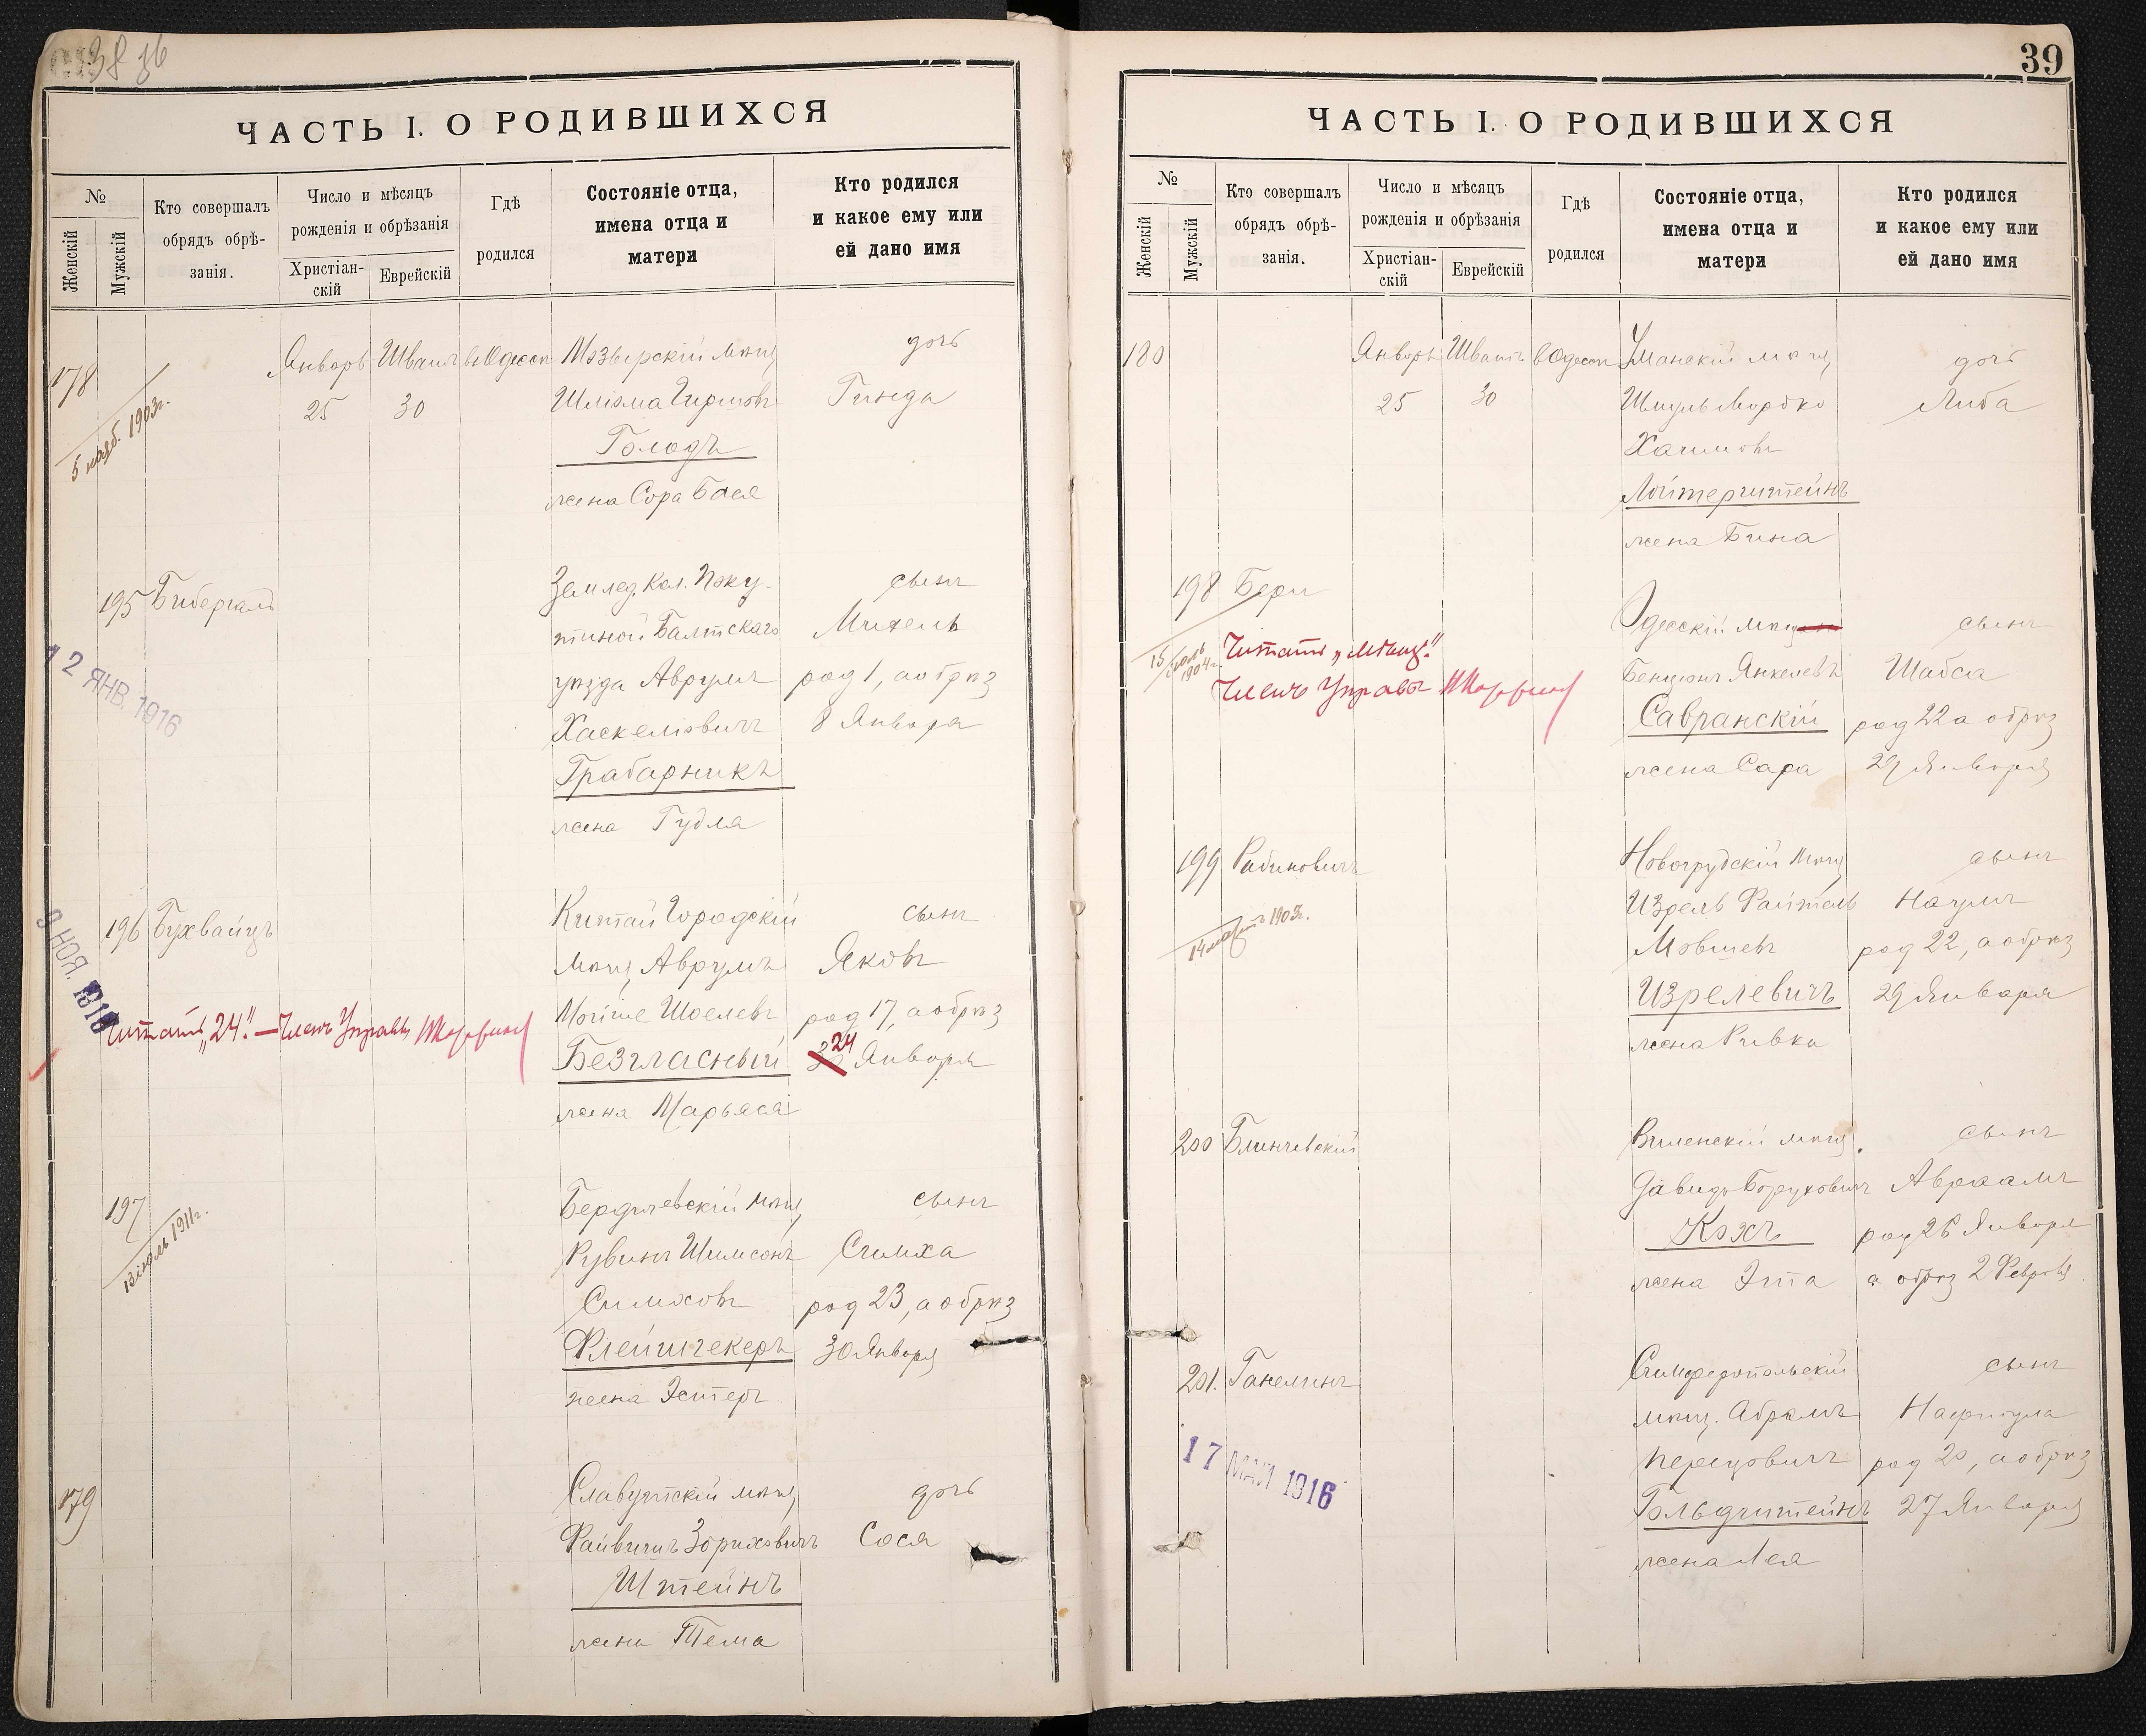 38 36
ЧАСТЬ I. О РОДИВШИХСЯ
№
Женскій
Мужскій
Кто совершалъ
обрядъ обрѣ-
занія.
Число и мѣсяцъ
рожденія и обрѣзанія
Христіан-
скій
Еврейскій
Гдѣ
родился
Состояніе отца,
имена отца и
матери
Кто родился
и какое ему или
ей дано имя
178
5 нояб. 1903г.
Январь Шватъ въ Одессѣ
25 30
Мозырскій мѣщ
Шліома Гиршовъ
Голодъ
жена Сора Бася
дочь
Гинда
195 Бибергалъ
12 ЯНВ. 1916
Землед. Кол.
Балтскаго
уѣзда Аврумъ
Хаскеліовичъ
Грабарникъ
жена Гудля
сынъ
Михель
род 1, а обрѣз
8 Января
196 Бухвайцъ
9 НОЯ. 1916
Читать „24“. — Членъ Управы
Китай Городскій
мѣщ Аврумъ
Мойше Шоелевъ
Безгласный
жена Марьяся
сынъ
Яковъ
род 17, а обрѣз
24 Января
197
13 іюль 1911г.
Бердичевскій мѣщ
Рувинъ Шимсонъ
Симховъ
Флейшгекеръ
жена Эстеръ
сынъ
Симха
род 23, а обрѣз
30 Января
179
Славутскій мѣщ
Файвишъ Зориховичъ
Штейнъ
жена Тема
дочь
Сося
39
ЧАСТЬ I. О РОДИВШИХСЯ
№
Женскій
Мужскій
Кто совершалъ
обрядъ обрѣ-
занія.
Число и мѣсяцъ
рожденія и обрѣзанія
Христіан-
скій
Еврейскій
Гдѣ
родился
Состояніе отца,
имена отца и
матери
Кто родился
и какое ему или
ей дано имя
180
Январь Шватъ въ Одессѣ
25 30
Уманскій мѣщ
Шмуль Мордко
Хаимовъ
Лойтерштейнъ
жена Бина
дочь
Либа
198 Бери
15 іюль 1904г.
Читать „мѣщ“.
Членъ Управы
Одесскій мѣщ
Бенціонъ Янкелевъ
Савранскій
жена Сара
сынъ
Шабса
род 22 а обрѣз
29 Января
199 Рабиновичъ
14 мартъ 1903г.
Новогрудскій мѣщ
Изрель Файтель
Мовшевъ
Изрелевичъ
жена Ривка
сынъ
Наумъ
род 22, а обрѣз
29 Января
200 Блинчевскій
Виленскій мѣщ.
Давидъ Боруховичъ
Кохъ
жена Эта
сынъ
Авраамъ
род 26 Января
а обрѣз 2 Февраля
201. Ганелинъ
17 МАЯ 1916
Симферопольскій
мѣщ. Абрамъ
Перецовичъ
Гольдштейнъ
жена Лея
сынъ
Нафтула
род 20, а обрѣз
27 Января